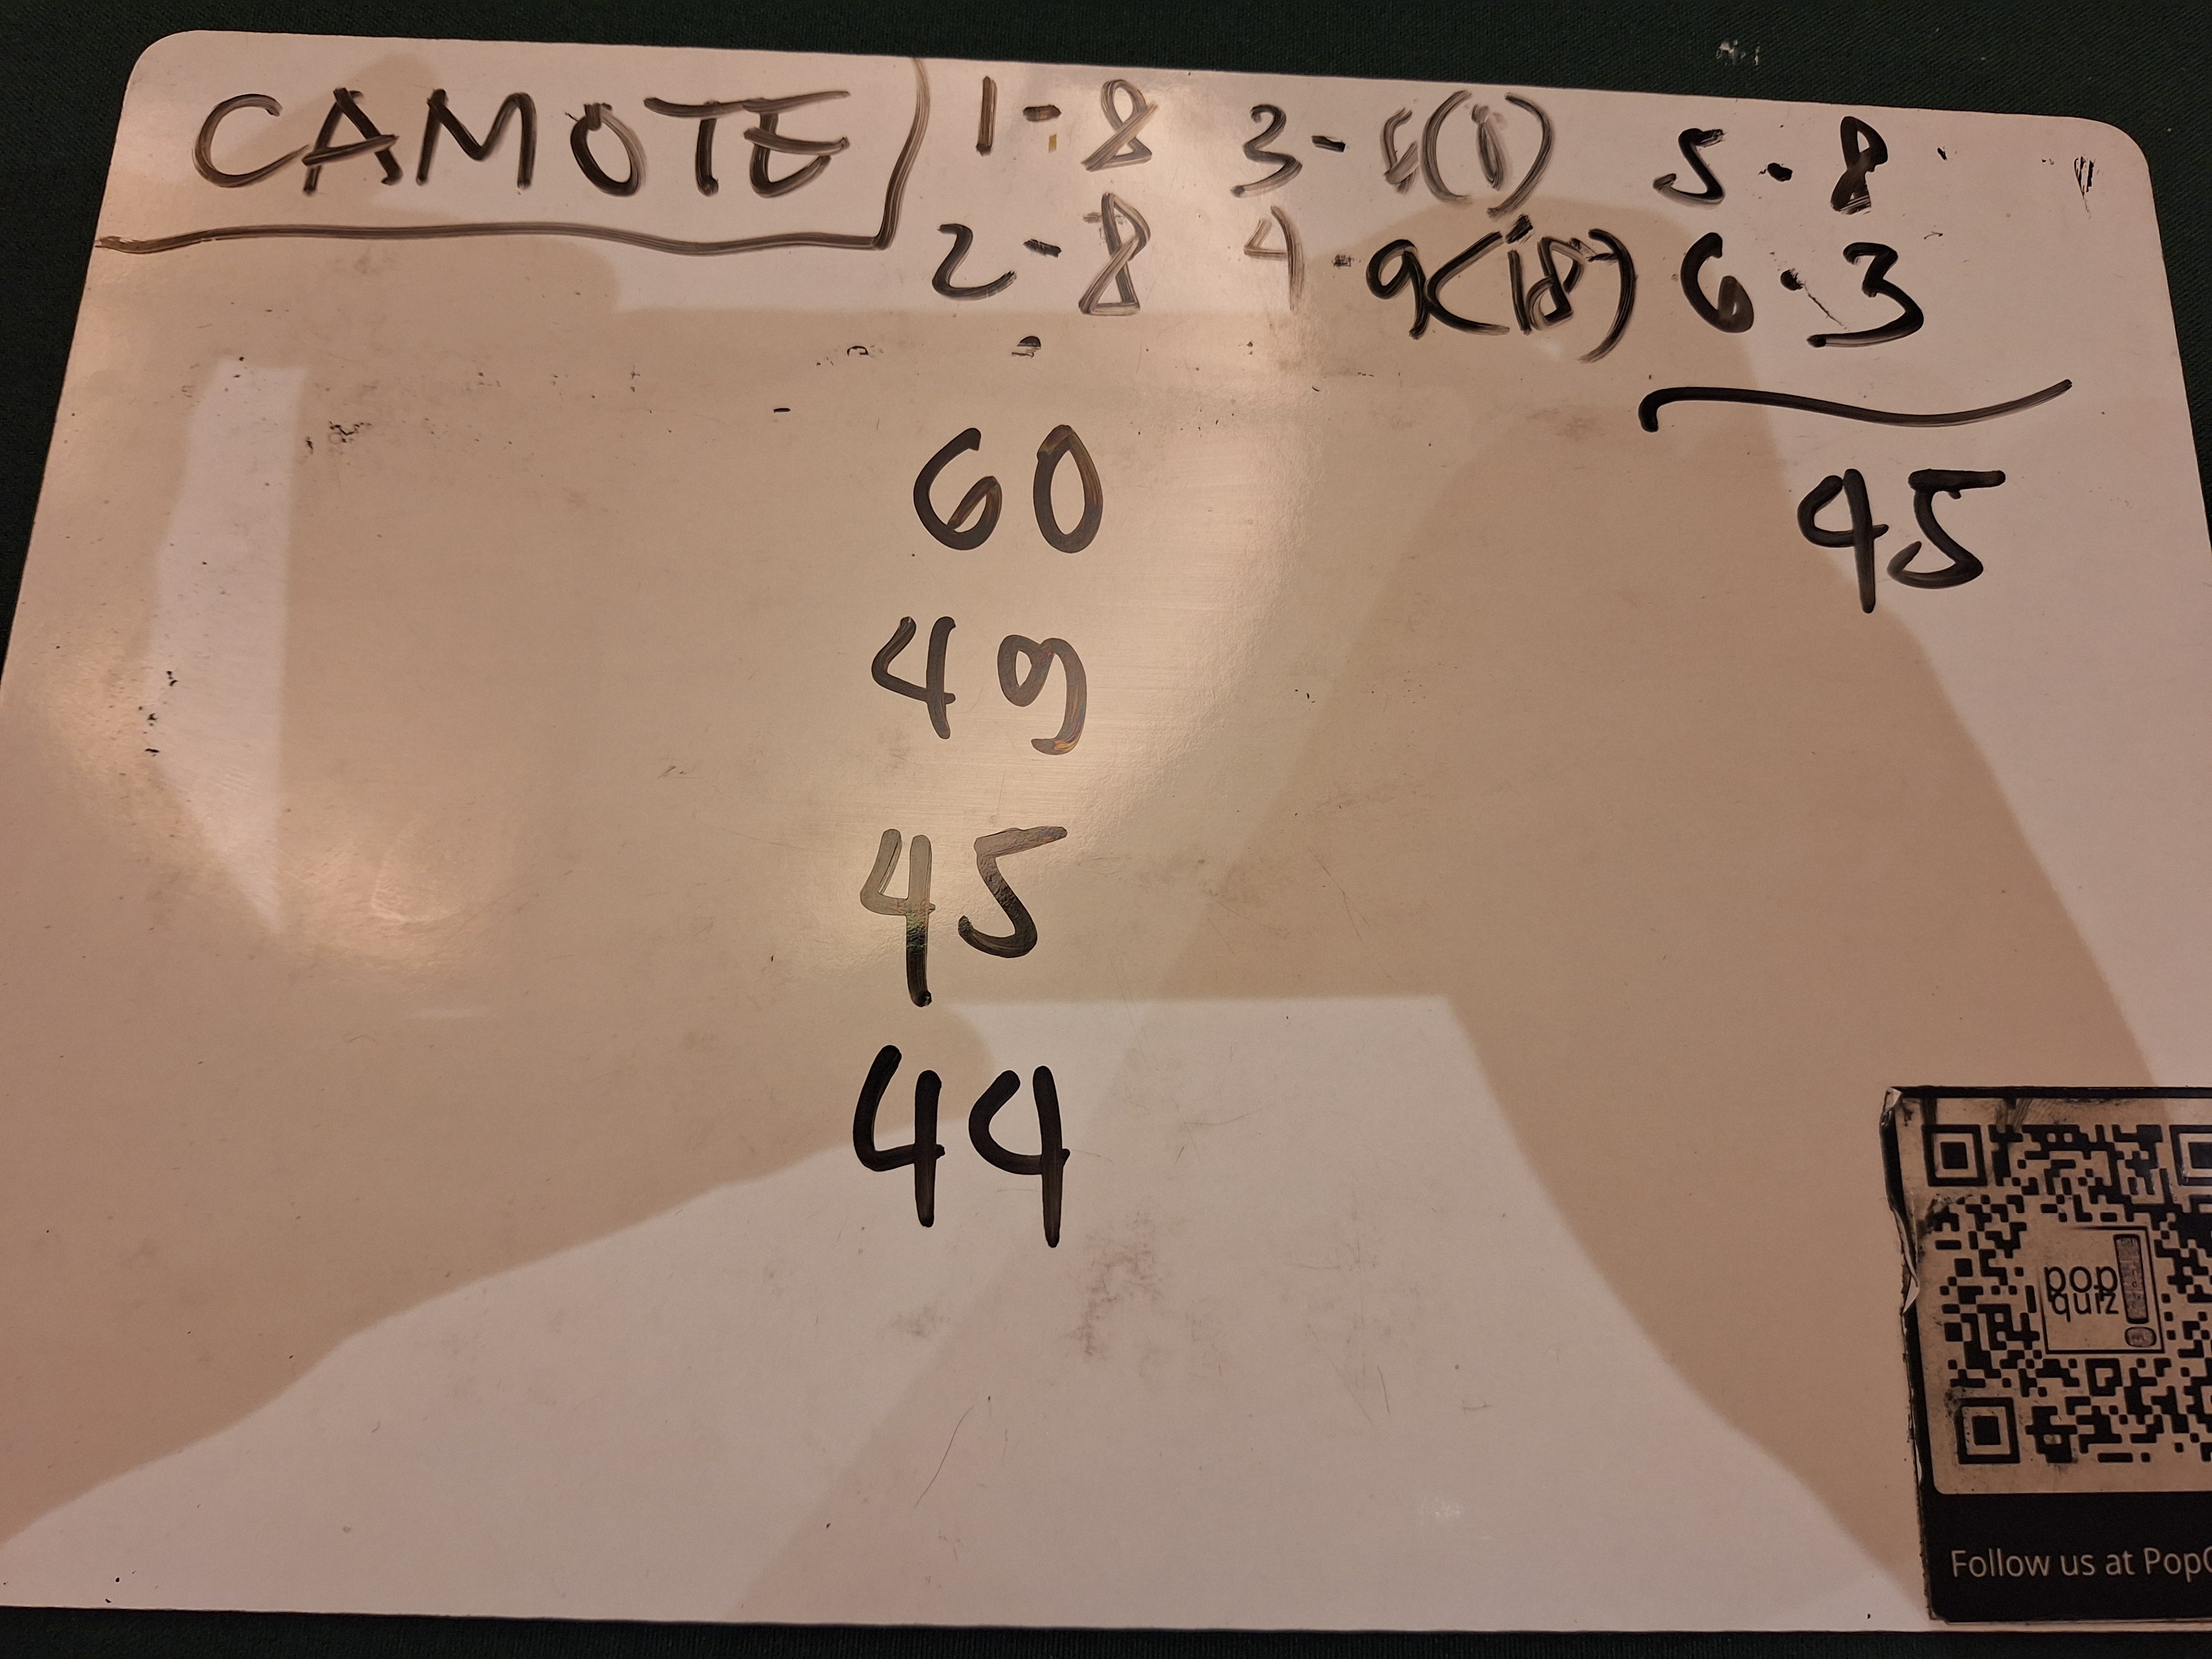 CAMOTE 1-8 3- (8) 5-8
2-8 4-9(18) 6-3
45
60
49
45
44
pop quiz!
Follow us at Pop